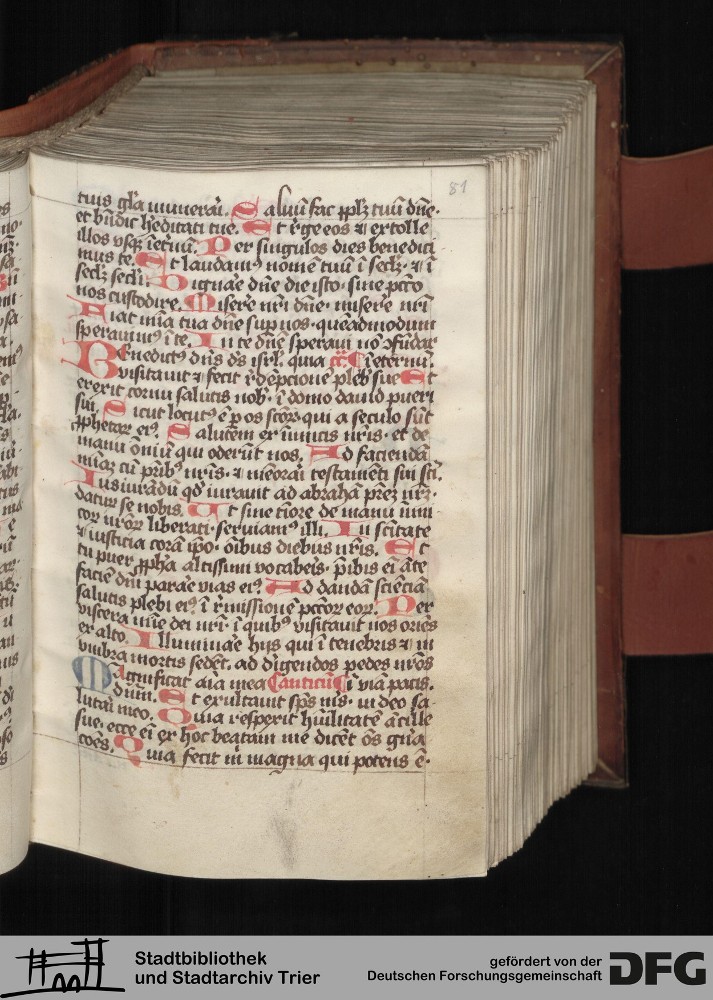 81
tuis gl'a munerari. Saluū fac pplʒ tuū dn̄e.
et bn̄dic h'editati tue. Et r'ge eos ⁊ extolle
illos vsqʒ ī et'nū. Per singulos dies benedici
mus te. Et laudam⁹ nomē tuū ī seclʒ. ⁊ ī
seclʒ secli. Dignar̄e dn̄e die isto. sine pctō
nos custodire. Miser̄e nr̄i dn̄e. miser̄e nr̄i
Fiat mīa tua dn̄e sup nos. quēadmodum
sperauim⁹ ī te. In te dn̄e speraui nō ↄfūdar
Benedict⁹ dn̄s ds̄ isrl̄. quia cāt. ī eternū.
visitauit ⁊ fecit r'dēpcionē pleb' sue Et
erexit cornu salutis nob'. ī domo dauid pueri
sui. Sicut locut⁹ ē p os sctōr. qui a seculo sūt
ꝓphetar ei⁹. Salutem ex inimicis nr̄is. et de
manu ōniū qui oderūt nos. Ad faciendā
mīaʒ cū prib⁹ nr̄is. ⁊ memorari testamēti sui sct̄i.
Iusiurādū qd' iurauit ad abrahā prēʒ nr̄ʒ.
datur se nobis. Ut sine tīore de manu īimi
cor nr̄or liberati. seruiam⁹ illi. In sctītate
⁊ iusticia corā ip̄o. ōibus diebus nr̄is. Et
tu puer ꝓph̄a altissimi vocaberis. p̄ibis eī āte
faciē dn̄i parar̄e vias ei⁹. Ad dandā sciēciā
salutis plebi ei⁹. ī r'missionē pctōr eor. Per
viscera mīe dei nr̄i. ī quib⁹ visitauit nos oriēs
ex alto. Illuminar̄e hys qui ī tenebris ⁊ in
vmbra mortis sedēt. ad dirigendos pedes nr̄os
Magnificat aīa mea Canticū ī viā pacis.
dn̄m. Et exultauit sp̄s me⁹. in deo sa-
lutari meo. Quia respexit hūilitatē ācille
sue. ecce eī ex hoc beatam me dicēt ōs gn̄a
cōes. Quia fecit m̄ magna qui potens ē.
Stadtbibliothek
und Stadtarchiv Trier
gefördert von der
Deutschen Forschungsgemeinschaft DFG